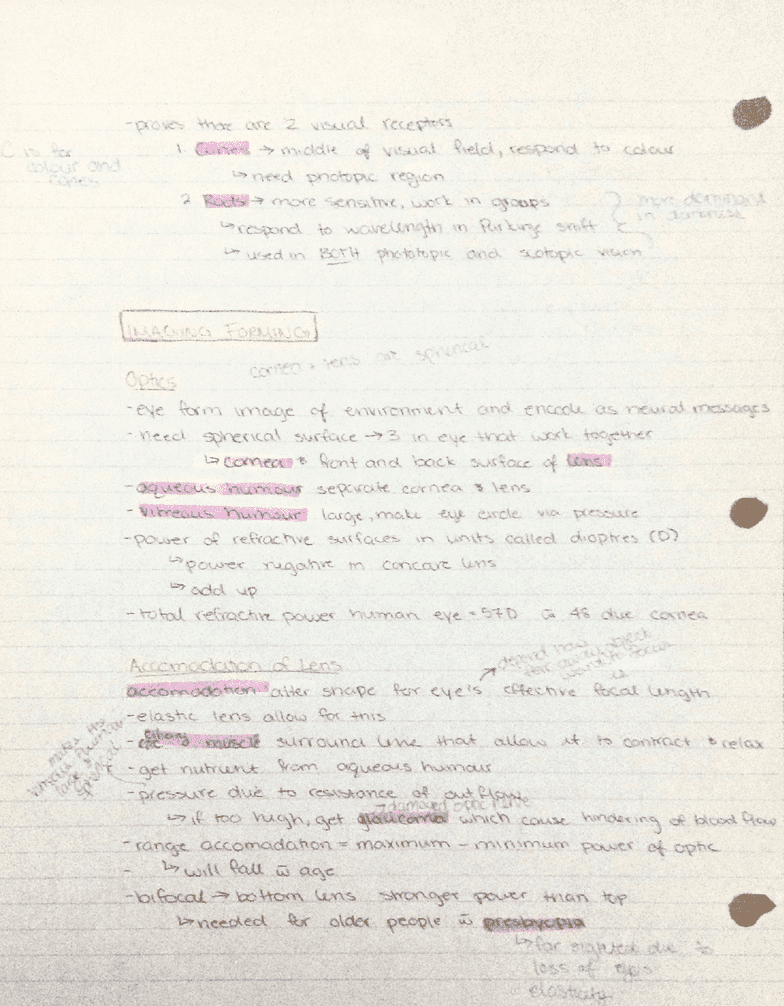 -proves there are 2 visual receptors
1. Cones → middle of visual field, respond to colour
C is for
colour and
cones
↳ need photopic region
2 Rods → more sensitive, work in groups
↳ respond to wavelength in Purkinje shift
more dominant
in darkness
↳ used in BOTH phototopic and scotopic vision
IMAGING FORMING
cornea + lens are spherical
Optics
- eye form image of environment and encode as neural messages
- need spherical surface → 3 in eye that work together
↳ cornea & front and back surface of lens
- aqueous humour separate cornea & lens
- vitreous humour large, make eye circle via pressure
- power of refractive surfaces in units called dioptres (D)
↳ power negative in concave lens
↳ add up
- total refractive power human eye = 57D w̄ 48 due cornea
Accomodation of Lens
depend how
far away object
want to focus
is
accomodation alter shape for eye's effective focal length
- elastic lens allow for this
- ciliary muscle surround lens that allow it to contract & relax
makes the
vitreous humour
large &
spherical
- get nutrient from aqueous humour
- pressure due to resistance of outflow
→ damaged optic nerve
↳ if too high, get glaucoma which cause hindering of blood flow
- range accomadation = maximum - minimum power of optic
- ↳ will fall w̄ age
- bifocal → bottom lens stronger power than top
↳ needed for older people w̄ presbyopia
↳ far sighted due to
loss of
elasticity